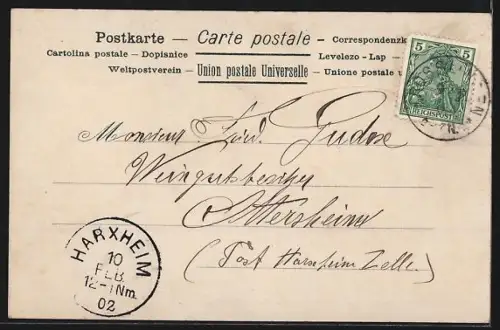 Postkarte — Carte postale — Correspondenzk
Cartolina postale — Dopisnice — Levelezo - Lap —
Weltpostverein — Union postale Universelle — Unione postale u
5 5
REICHSPOST
Monsieur Fried. Gudose
Weingutsbesitzer
Ottersheim
(Post Harxheim Zelle.)
HARXHEIM
10
FEB.
12-1Nm.
02